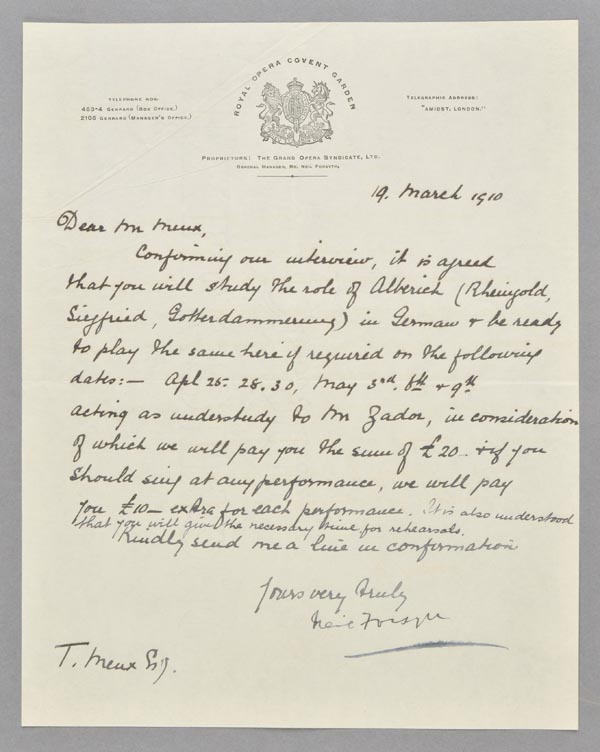 ROYAL OPERA COVENT GARDEN
TELEPHONE NOS.
453-4 GERRARD (BOX OFFICE.)
2105 GERRARD (MANAGER'S OFFICE.)
TELEGRAPHIC ADDRESS:
"AMIDST, LONDON."
PROPRIETORS: THE GRAND OPERA SYNDICATE, LTD.
GENERAL MANAGER, MR. NEIL FORSYTH.
19. March 1910
Dear Mr Meux,
Confirming our interview, it is agreed
that you will study the role of Alberich (Rheingold,
Siegfried, Gotterdammerung) in German & be ready
to play the same here if required on the following
dates:— Apl 25. 28. 30, May 3rd. 6th & 9th
acting as understudy to Mr Zador, in consideration
of which we will pay you the sum of £20— & if you
should sing at any performance, we will pay
you £10— extra for each performance. It is also understood
that you will give the necessary time for rehearsals.
Kindly send me a line in confirmation
Yours very truly
Neil Forsyth
T. Meux Esq.